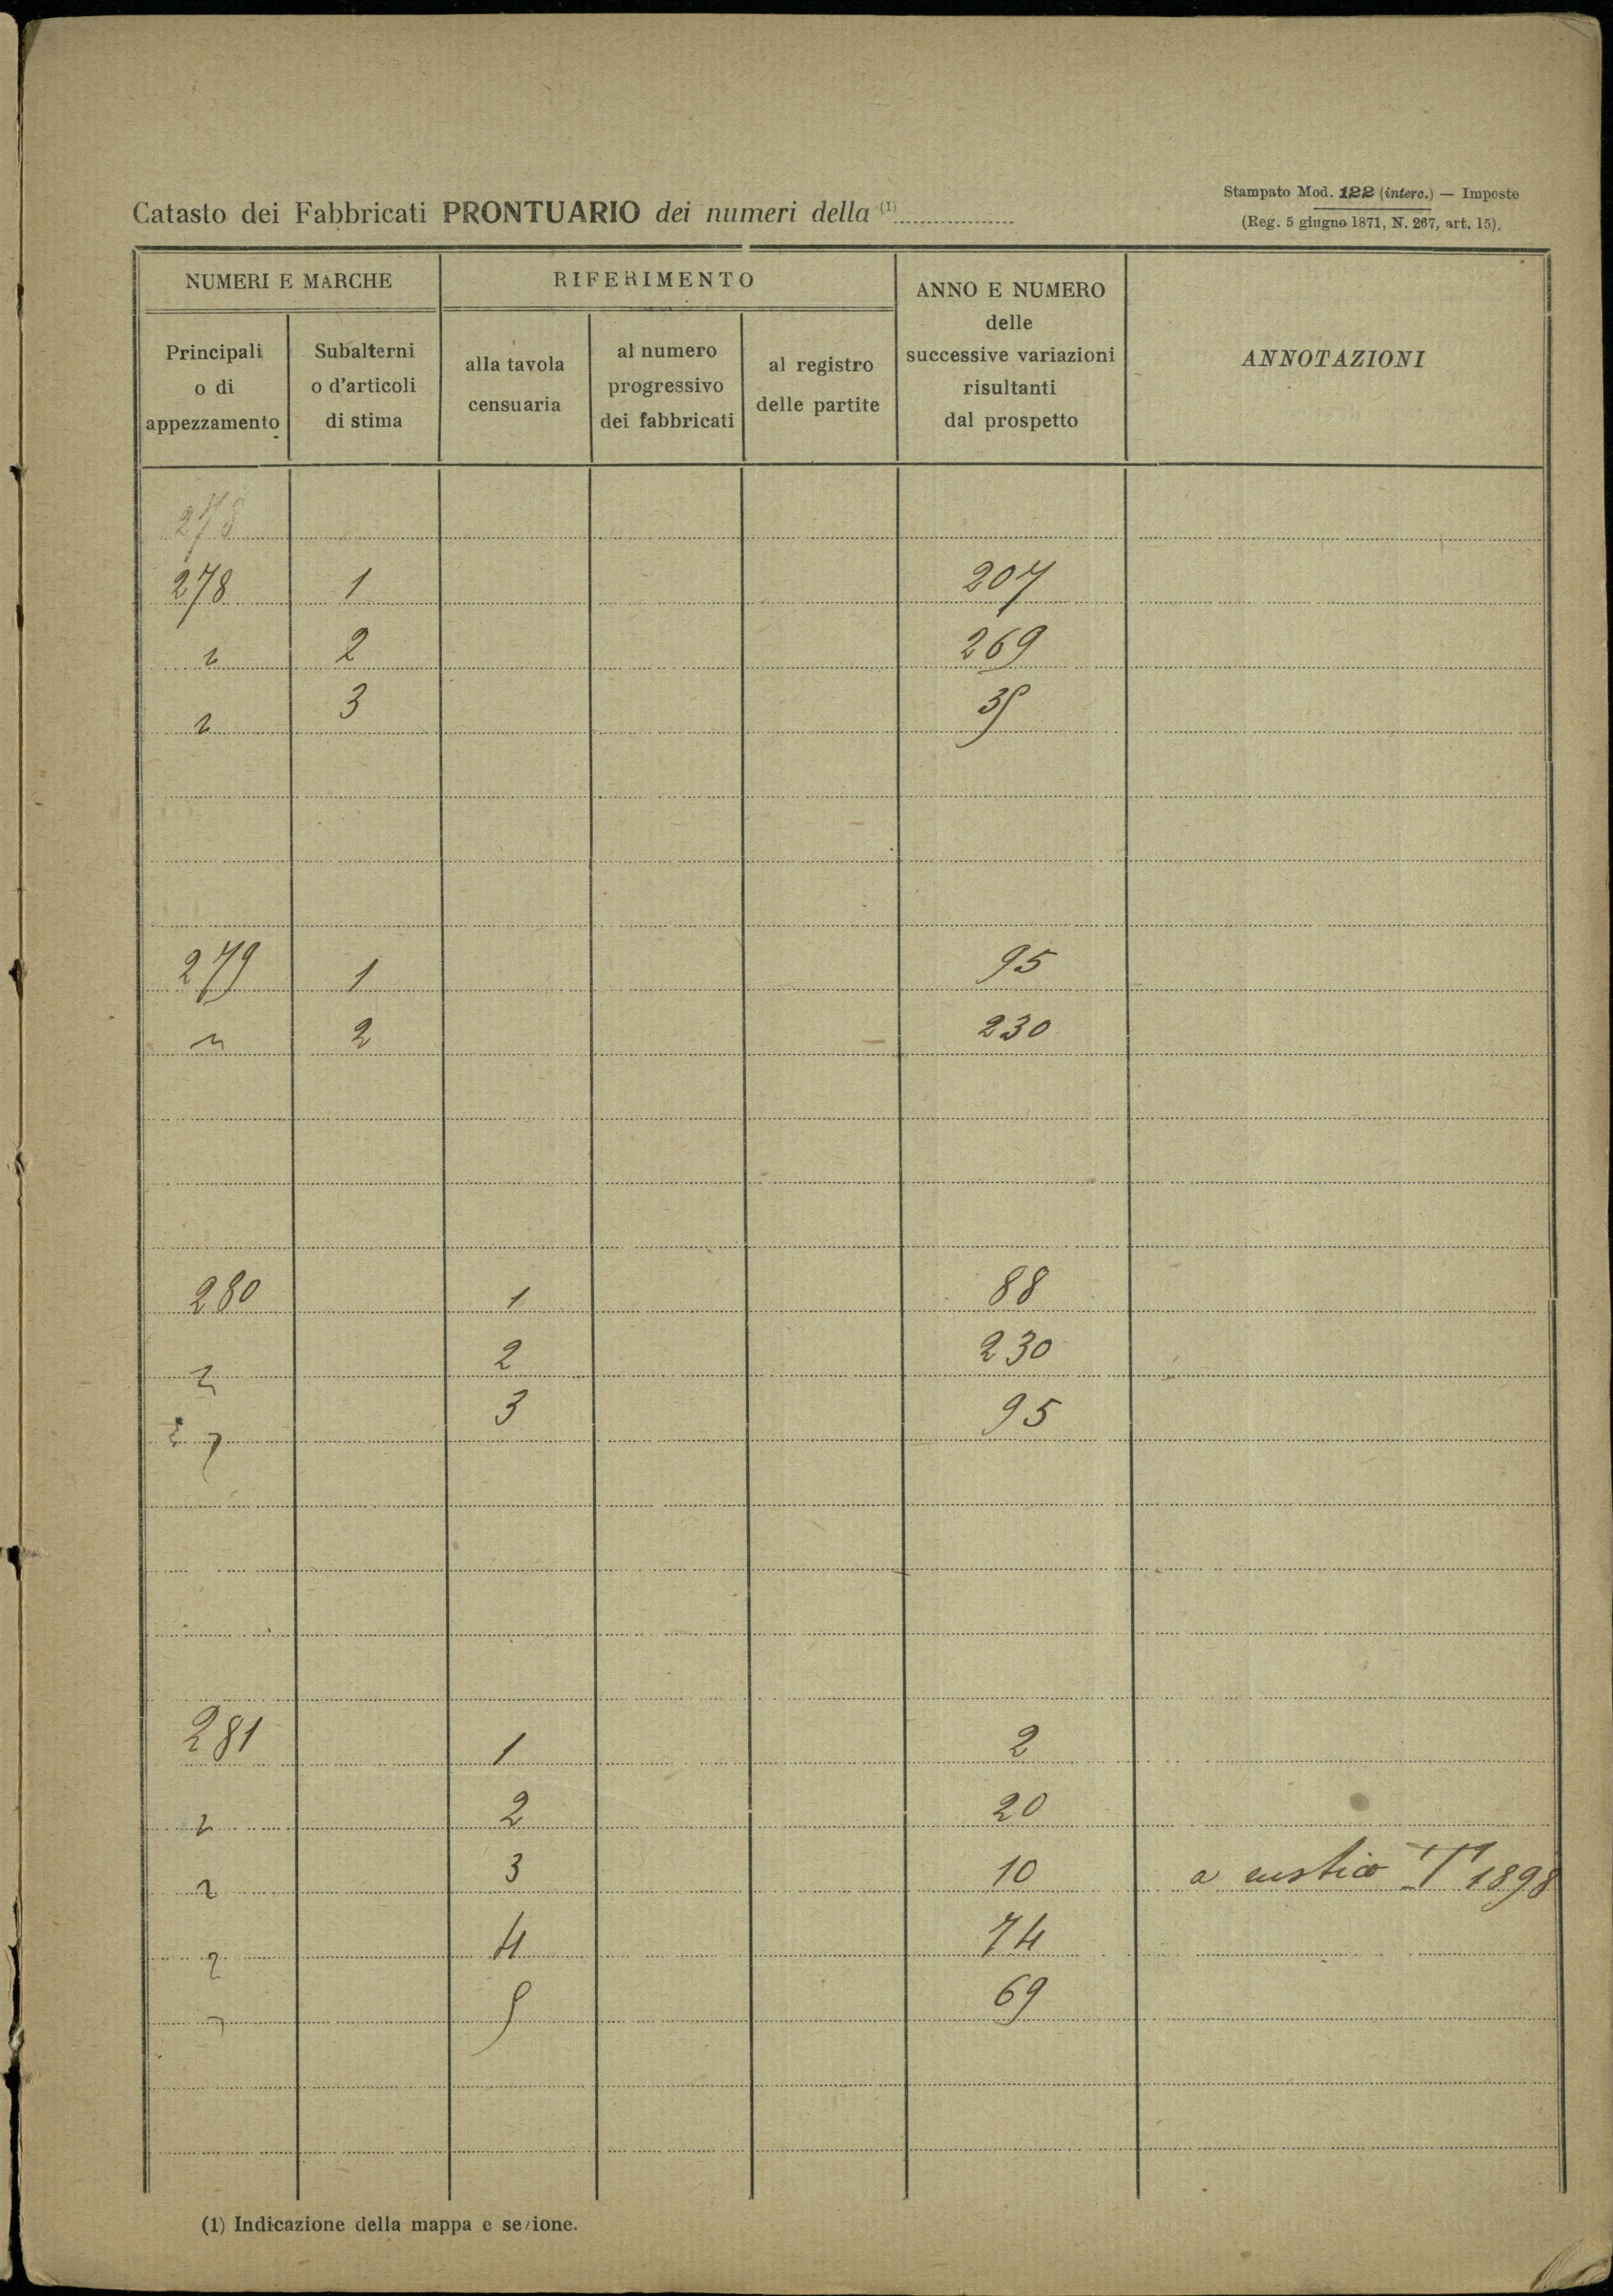 Stampato Mod. 122 (interc.) — Imposte
Catasto dei Fabbricati PRONTUARIO dei numeri della (1)
(Reg. 5 giugno 1871, N. 267, art. 15).
NUMERI E MARCHE
RIFERIMENTO
ANNO E NUMERO
delle
successive variazioni
risultanti
dal prospetto
ANNOTAZIONI
Principali
o di
appezzamento
Subalterni
o d'articoli
di stima
alla tavola
censuaria
al numero
progressivo
dei fabbricati
al registro
delle partite
278
278 1 207
" 2 269
" 3 35
279 1 95
" 2 230
280 1 88
" 2 230
" 3 95
281 1 2
" 2 20
" 3 10 a rustico T 1898
" 4 74
" 5 69
(1) Indicazione della mappa e sezione.